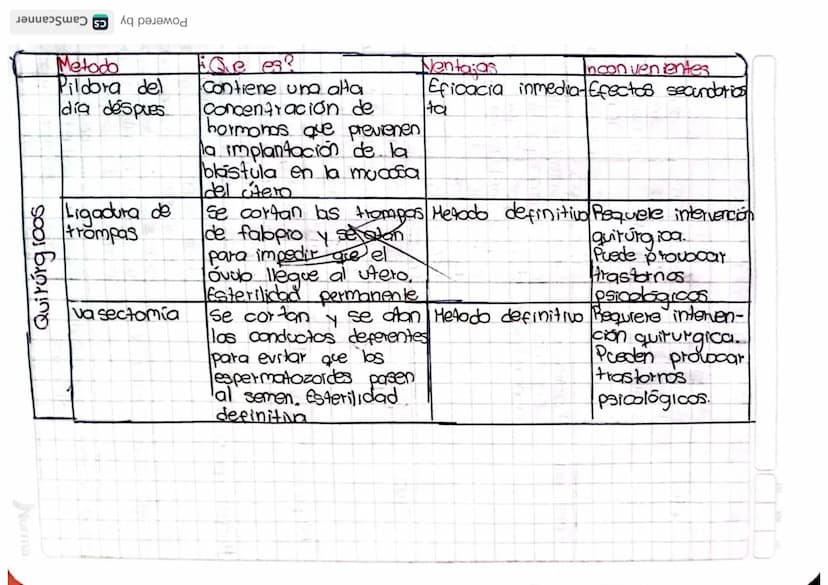 Powered by CS CamScanner
Metodo
¿Que es?
Ventajas
nconvenientes
Pildora del
día déspues
Contiene una alta
concentración de
hormonas que previenen
la implantación de la
blástula en la mucosa
del útero
Eficacia inmedia-
ta
Efectos secundarios
Quirúrgicos
Ligadura de
trompas
Se cortan las trompas
de falopio y se atan
para impedir que el
óvulo llegue al utero.
Esterilidad permanente
Metodo definitivo
Requiere intervención
quirúrgica.
Puede provocar
trastornos
psicológicos
vasectomía
Se cortan y se atan
los conductos deferentes
para evitar que los
espermatozoides pasen
al semen. Esterilidad
definitiva
Metodo definitivo
Requiere interven-
ción quirurgica.
Pueden provocar
trastornos
psicológicos.
Norma